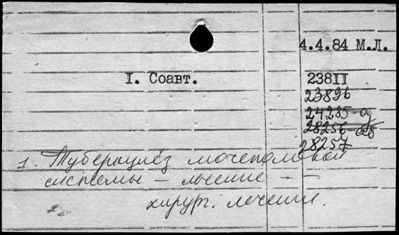 4.4.84 М.Л.
I. Соавт.
238II
23896
24235-од
28256-об
28257
1. Туберкулёз мочеполовой
системы - лечение -
хирург. лечение.